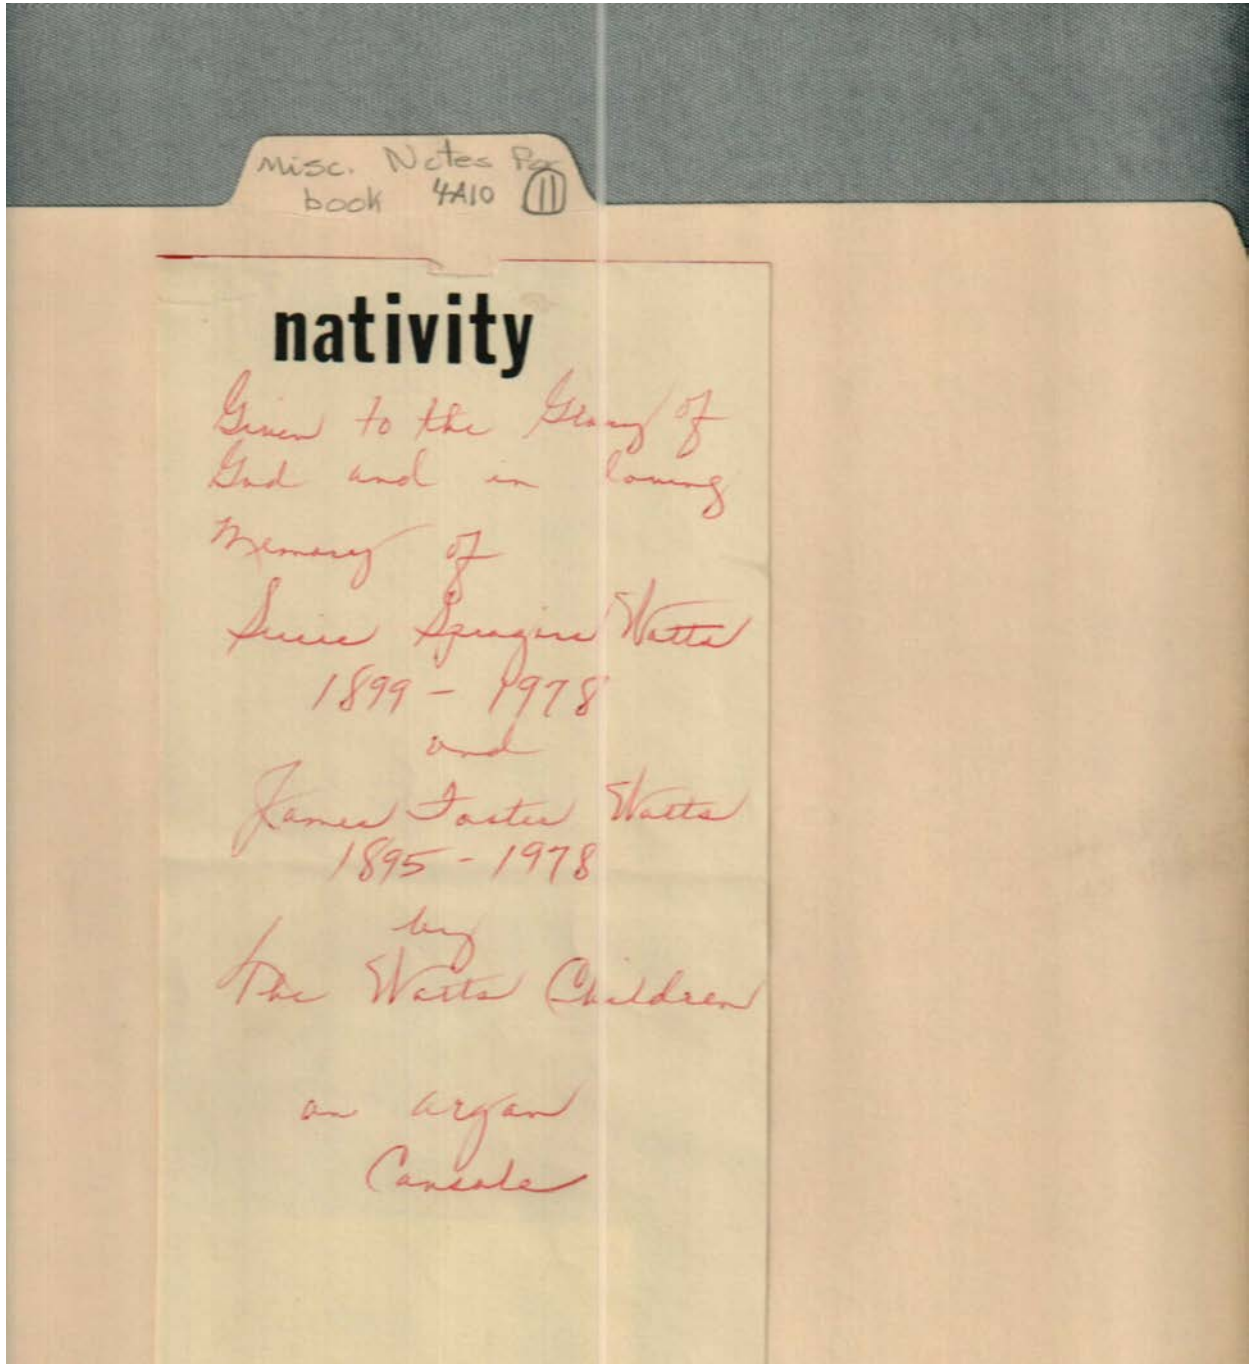 Misc. Notes For
book 4A10 11
nativity
Given to the Glory of
God and in loving
Memory of
Susie Spragins Watts
1899 - 1978
and
James Foster Watts
1895 - 1978
by
The Watts Children
on organ
Console